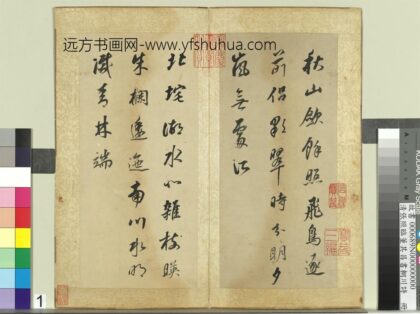 远方书画网-www.yfshuhua.com
秋山斂餘照飛鳥逐
前侣彩翠時分明夕
嵐無處所
北垞湖水北雜樹暎
朱欄逶迤南川水明
滅青林端
1